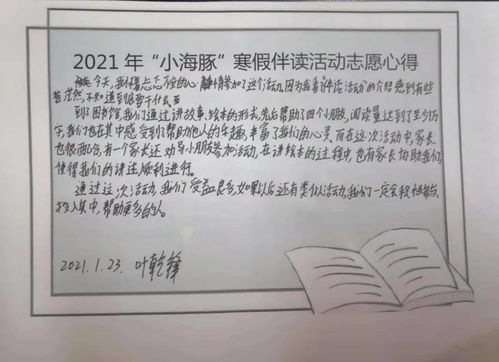 2021年“小海豚”寒假伴读活动志愿心得
今天，我怀着忐忑不安的心 参加了这个活动，因为看着“伴读活动”的介绍感到有些
茫然，不知道到底要干什么
到了图书馆，我们通过讲故事、绘本的形式，先后帮助了四个小朋友，阅读量达到了至少1万
字，我们也在其中感受到了帮助他人的乐趣，丰富了我们的心灵。而在这一次活动中，家长
也很配合，有一个家长还劝导小朋友参加活动，在讲绘本的过程中，也有家长协助我们，
使得我们的讲述顺利进行。
通过这一次活动，我们受益良多，如果以后还有类似活动，我们一定会积极参与，
投入其中，帮助更多的人。
2021.1.23. 叶乾锋